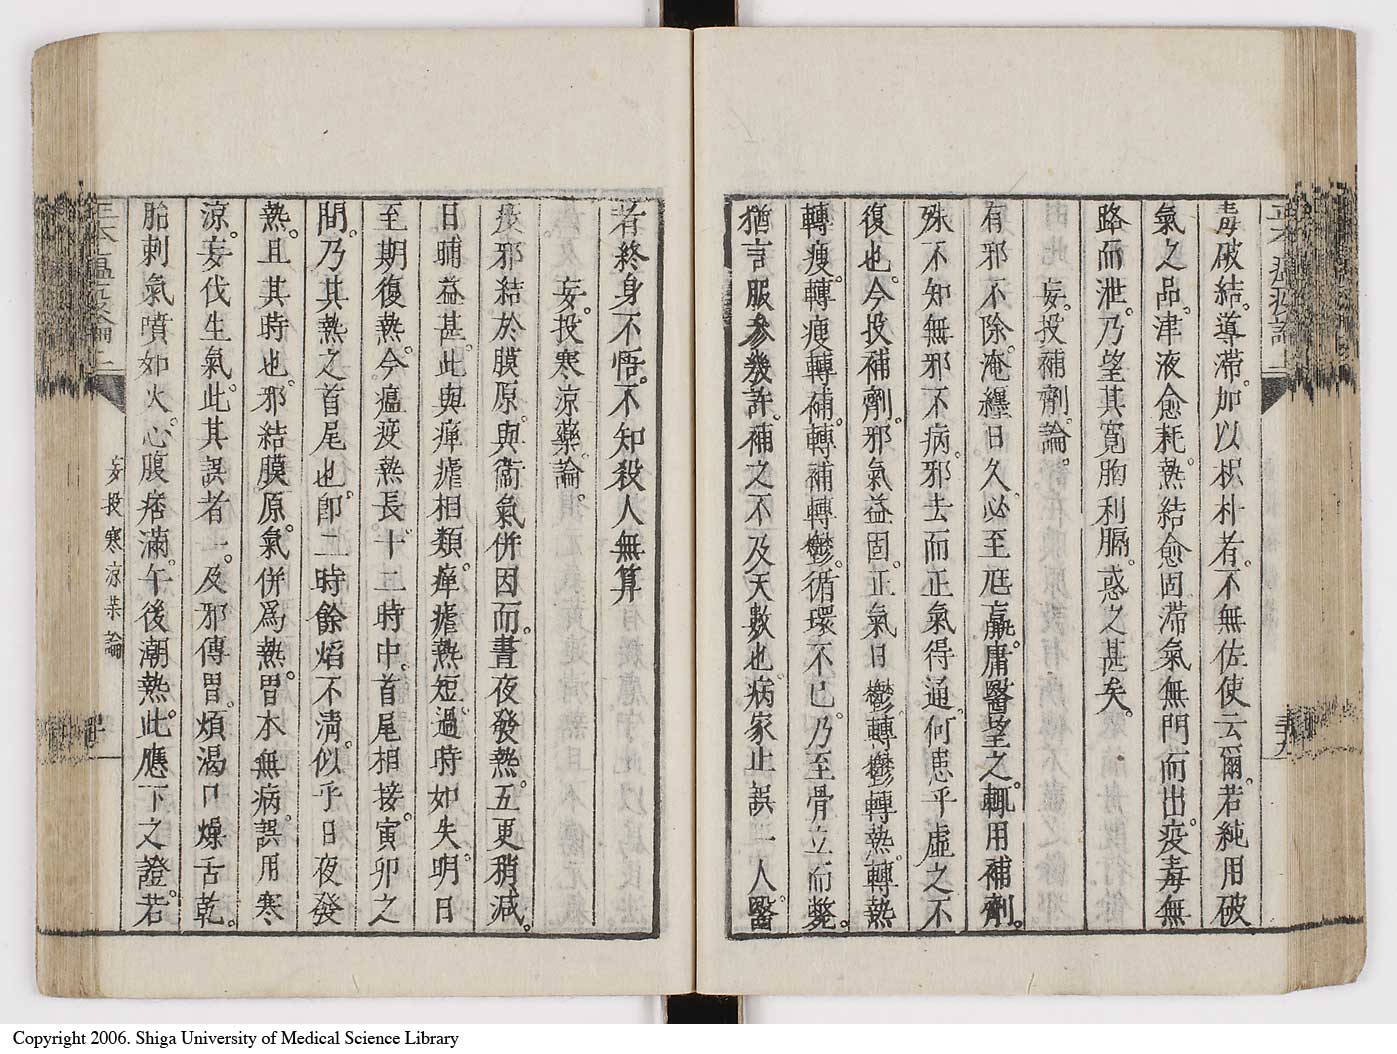 毒破結。導滞。加以枳朴者。不無佐使云爾。若純用破
氣之品。津液愈耗。熱結愈固。滞氣無門而出。疫毒無
路而泄。乃望其寛胸利膈。惑之甚矣。
妄投補劑論。
有邪不除。淹纏日久。必至尫羸。庸醫望之。輒用補劑。
殊不知無邪不病。邪去而正氣得通。何患乎虚之不
復也。今投補劑。邪氣益固。正氣日鬱。轉鬱轉熱。轉熱
轉瘦。轉瘦轉補。轉補轉鬱。循環不已。乃至骨立而斃。
猶言服參幾許。補之不及。天數也。病家止誤一人。醫
者終身不悟。不知殺人無算
妄投寒涼藥論。
疫邪結於膜原。與衞氣併。因而晝夜發熱。五更稍減。
日晡益甚。此與癉瘧相類。癉瘧熱短。過時如失。明日
至期復熱。今瘟疫熱長。十二時中。首尾相接。寅卯之
間。乃其熱之首尾也。即二時餘焰不清。似乎日夜發
熱。且其時也。邪結膜原。氣併爲熱。胃本無病。誤用寒
涼。妄伐生氣。此其誤者一。及邪傳胃。煩渴口燥舌乾。
胎刺氣噴如火。心腹痞滿。午後潮熱。此應下之證。若
妄投寒涼藥論
Copyright 2006. Shiga University of Medical Science Library